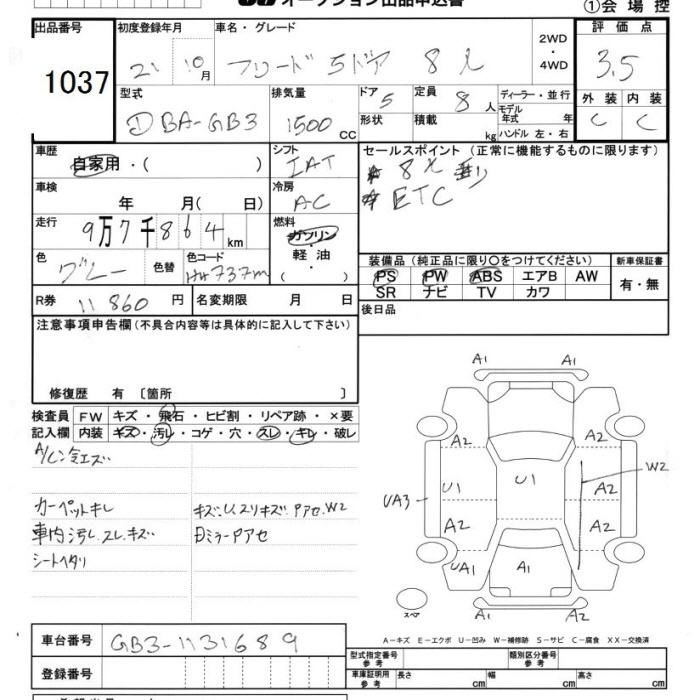 オークション出品申込書
①会場控
出品番号 初度登録年月 車名・グレード 2WD ・ 4WD 評価点
1037 21 10月 フリード 5ドア 8人 3.5
型式 排気量 ドア 5 定員 8人 ディーラー・並行 外装 内装
DBA-GB3 1500CC 形状 積載 kg モデル年式 年式 ハンドル 左・右 C C
車歴 シフト セールスポイント (正常に機能するものに限ります)
自家用・( ) IAT
車検 冷房 ETC
年 月( 日) AC
走行 燃料
9万7千864km ガソリン・軽油・( )
色 色替 色コード 装備品(純正品に限り○をつけてください) 新車保証書
グレー NH737m PS PW ABS エアB AW 有・無
SR ナビ TV カワ
R券 11860円 名変期限 月 日 後日品
注意事項申告欄(不具合内容等は具体的に記入して下さい)
修復歴 有 〔箇所 〕
検査員 FW キズ・飛石・ヒビ割・リペア跡・×要
記入欄 内装 キズ・汚レ・コゲ・穴・スレ・キレ・破レ
A/C
カーペットキレ キズ、U、スリキズ、Pアセ、W2
車内汚レ、スレ、キズ Dミラーアセ
シートヘタリ
A1 A1
A2 A2
W2
UA3 U1 U1 A2
A2 A2
UA1 A1
スペア
A1 A1
A-キズ E-エクボ U-凹み W-補修跡 S-サビ C-腐食 XX-交換済
車台番号 GB3-1131689 型式指定番号 参考 類別区分番号 参考
登録番号 車庫証明用 参考 長さ cm 幅 cm 高さ cm